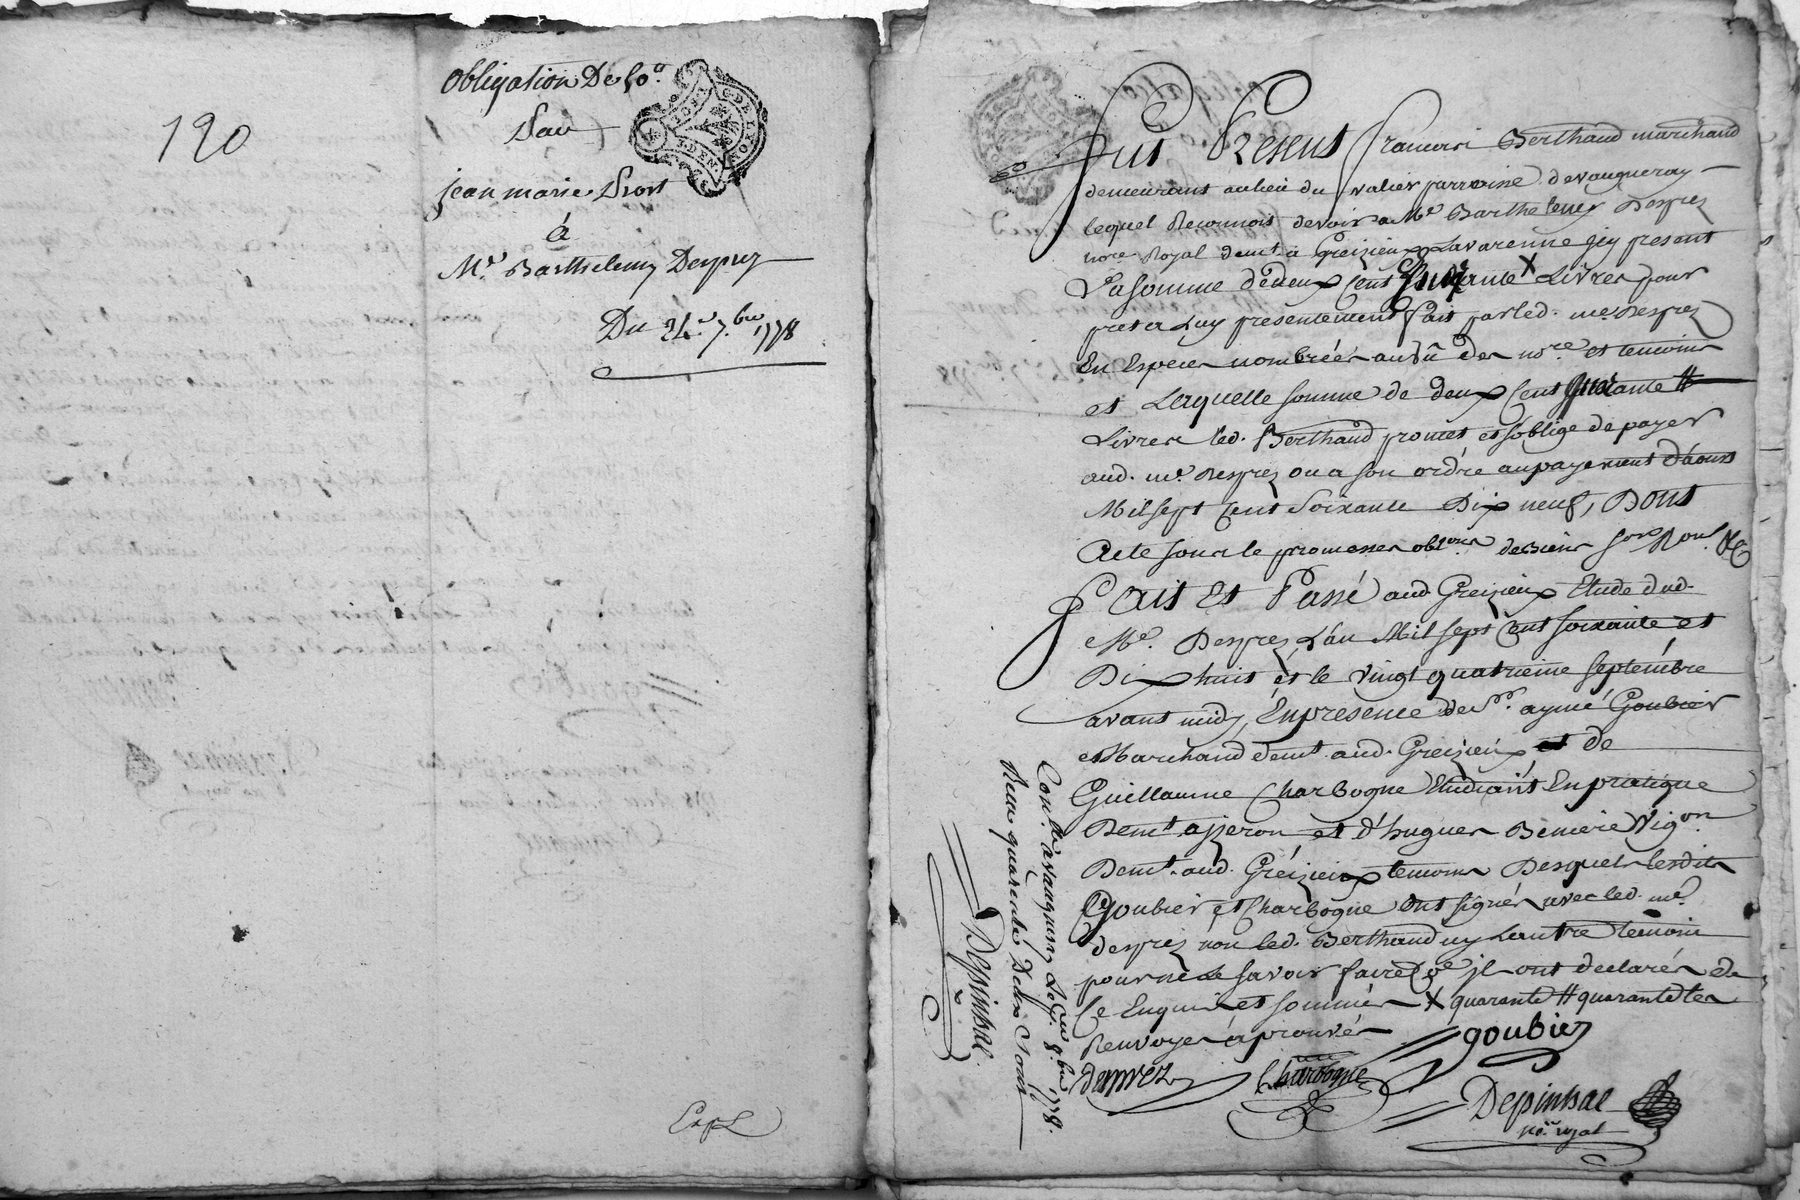 190
Obligation De
par
jean marie
à
Me. Barthelemy Desprez
Du 24e. 7.bre 1778
Expé
Fut Présent françois Berthaud marchand
demeurant au lieu du parroisse de vaugneray
lequel Reconnois devoir a Me Barthelemy Desprez
nore Royal demt. à Greizieux Lavarenne jcy present
La somme de deux Cent X Livres pour
prest a Luy presentement fait par led. me. Desprez
En Especes nombrées au vû des nore. et temoins
et Laquelle somme de deux Cent #
Livres led. Berthaud promet et s'oblige de payer
aud. me. Desprez ou a son ordre au payement d'aoust
Mil sept Cent Soixante Dix neuf, Dont
Acte sous le promesses
Fait Et Passé aud. Greizieux Etude dud.
Me. Desprez, L'an Mil sept Cent soixante et
Dix huit et le vingt quatrieme septembre
avant midy, En presence de sr. aymé Goubier
Marchand demt. aud. Greizieux et de
Guillaume Charbogne Etudiant En pratique
Demt. a yzeron et d'hugues
Demt. aud. Greizieux temoins Desquels lesdits
Goubier et Charbogne ont signés avec led. me.
desprez non led. Berthaud ny Lautre temoin
pour ne le savoir faire Come jl ont declarés de
Ce Enquis et sommés X quarante # quarante les
Renvoyés aprouvés
goubier
desprez
Charbogne
Depinhac
no. royal
Conle. a vaugneray Le 8.bre 1778.
Reçu quarante Deux sols
Depinhac